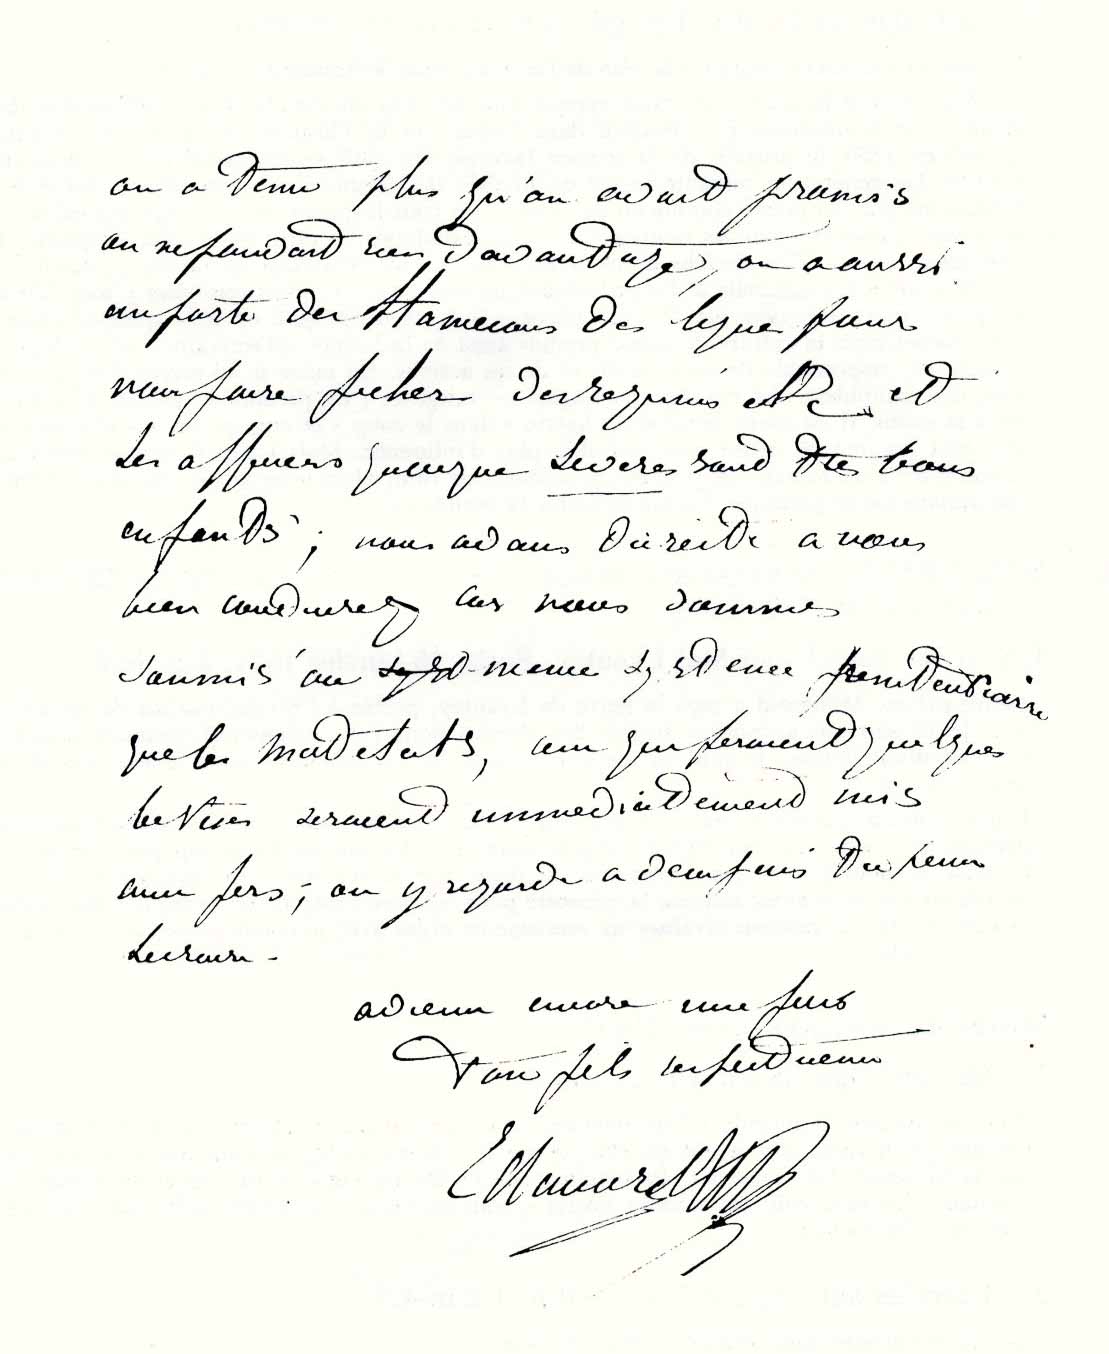 on a tenu plus qu'on avait promis
on ne perdait rien davantage, on a aussi
emporté des Hameçons des ligne pour
nous faire pecher des requins etc et
les officiers quoique severes sont tres bons
enfants; nous avons interet a nous
bien conduire car nous sommes
soumis au meme systeme penitentiaire
que les matelots, ceux qui feraient quelques
betises seraient immediatement mis
aux fers; on y regarde a deux fois
adieu encore une fois
ton fils respectueux
Edouard M